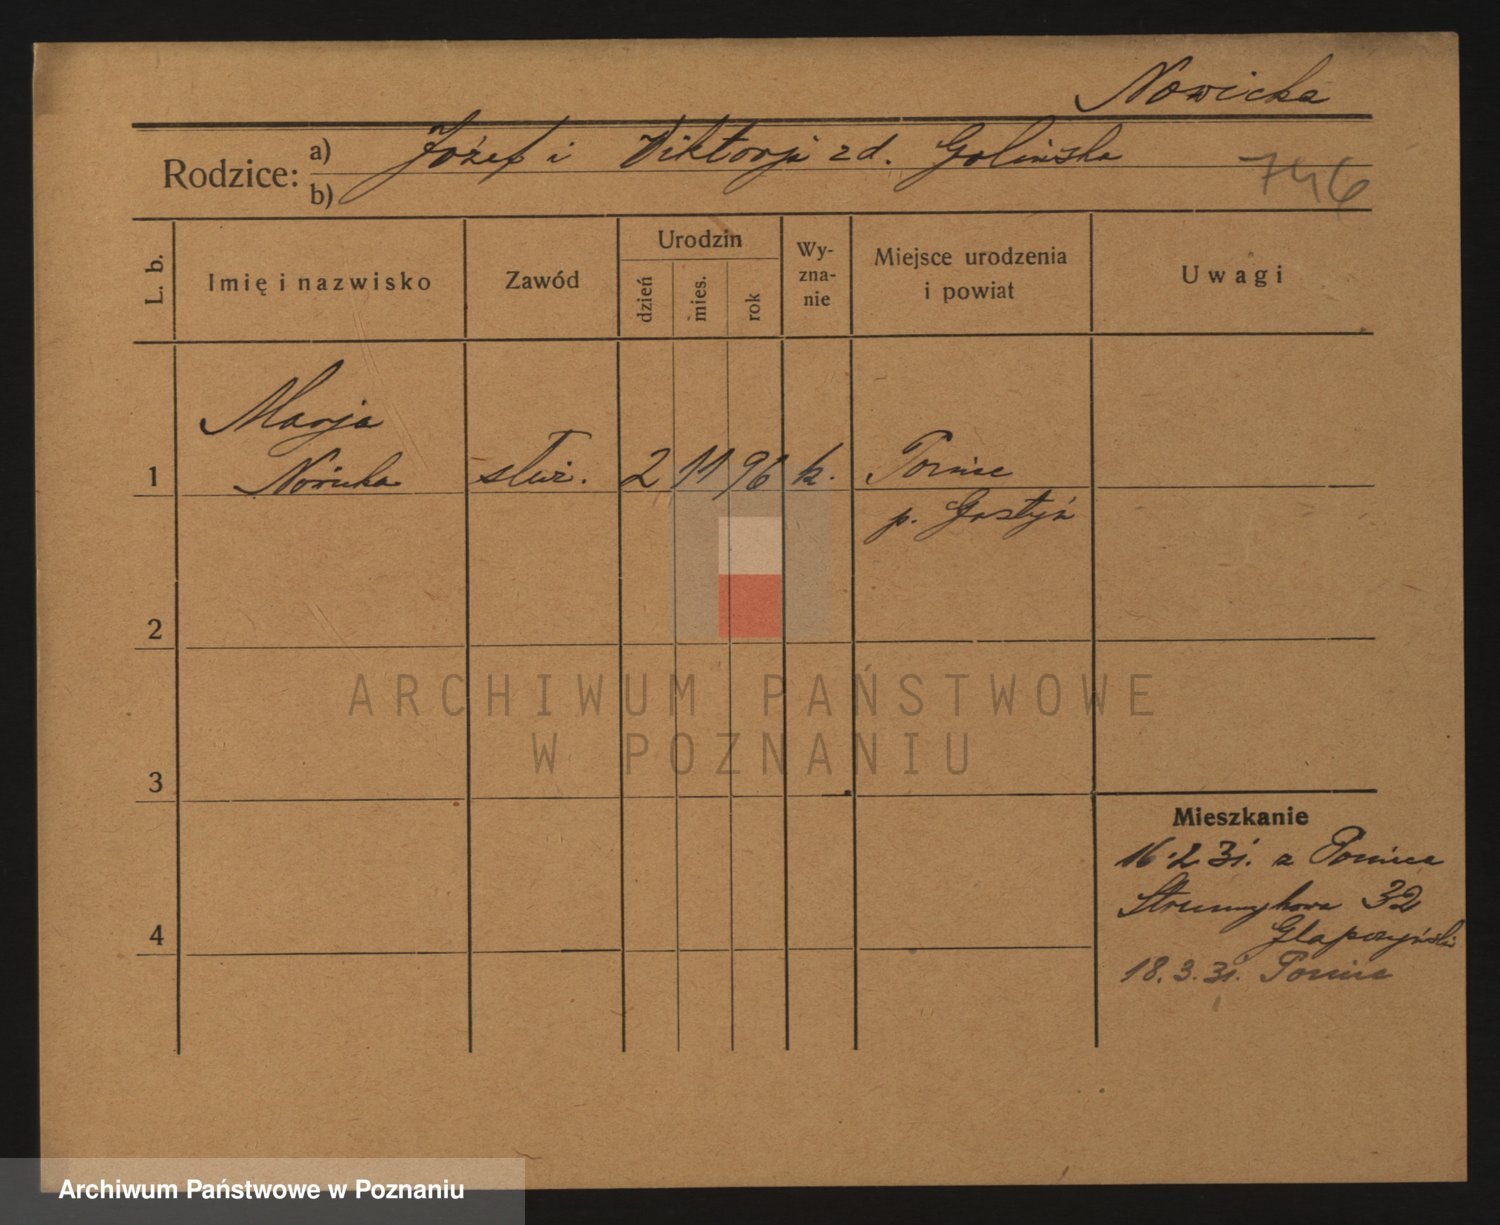 Nowicka
Rodzice: a) Józef i Viktorja zd. Golińska
b)
746
L. b.
Imię i nazwisko
Zawód
Urodzin
dzień
mies.
rok
Wy-
zna-
nie
Miejsce urodzenia
i powiat
Uwagi
Marja
1 Nowicka służ. 2 11 96 k. Poniec
p. Gostyń
2
ARCHIWUM PAŃSTWOWE
W POZNANIU
3
Mieszkanie
16.2 31. z Ponieca
Strumykowa 32
Glapczyński
4
18.3.31. Poniec
Archiwum Państwowe w Poznaniu